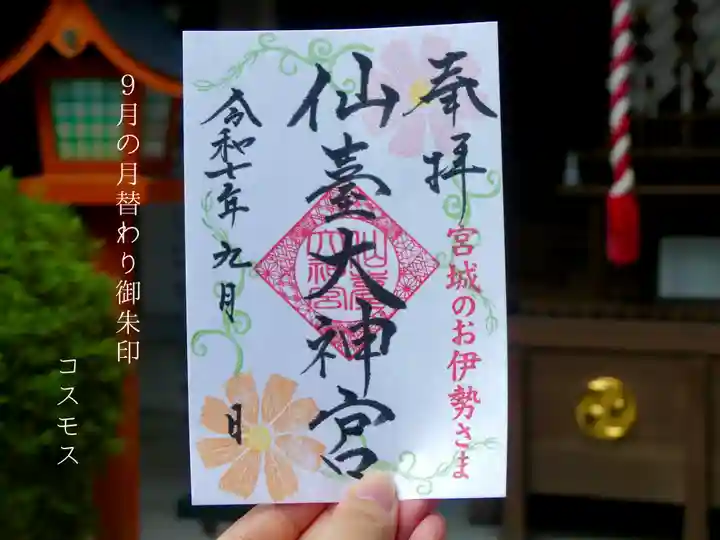 奉拝
宮城のお伊勢さま
仙臺大神宮
令和七年九月
日
9月の月替わり御朱印
コスモス